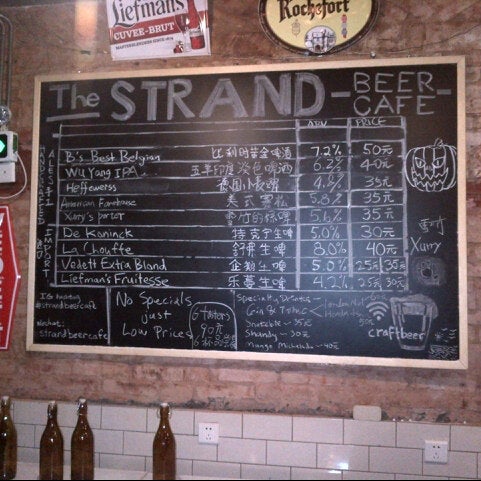 Liefmans
CUVEE-BRUT
Rochefort
The STRAND - BEER CAFE -
ABV PRICE
HANDCRAFTED ALES #1
B's Best Belgian 比利时 啤酒 7.2% 50元
Wu Yang IPA 五羊印度淡色啤酒 6.2% 40元
Heffewerss 35元
American Farmhouse 美式 5.8% 35元
Xury's porter 5.6% 35元
IMPORT
De Koninck 特克宁生啤 5.0% 30元
La Chouffe 舒弗生啤 8.0% 40元
Vedett Extra Blond 企鹅生啤 5.0% 25元 35元
Liefman's Fruitesse 乐蔓生啤 4.2% 25元 30元
Xury
IG hashtag
#strandbeercafe
Wechat:
strandbeercafe
No Specials
just
Low Prices
6 tasters
90元
Specialty Drinks
Gin & Tonic
35元
Shandy - 30元
Mango Michelada - 40元
craftbeer